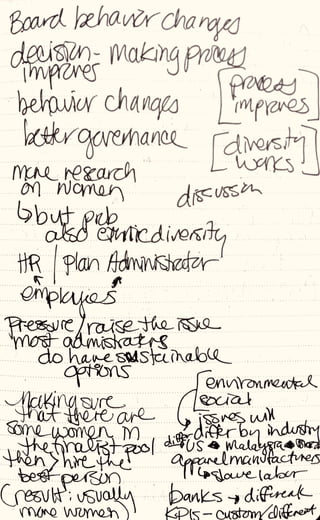 Board behavior changes
decision-making process
improves
behavior changes
better governance
[process
improves]
[diversity
works]
more research
on women
discussion
↳ but prob
also ethnic diversity
HR / Plan Administrator
employees
Pressure / raise the issue
most admistrators
do have sustainable
options
Making sure
that there are
some women in
the finalist pool
then > hire the
best person
(result: usually
more women)
[environmental
social
issues will
differ by industry
US → malaysia
apparel manufacturers
↳ slave labor
banks → different
KPIs - custom different